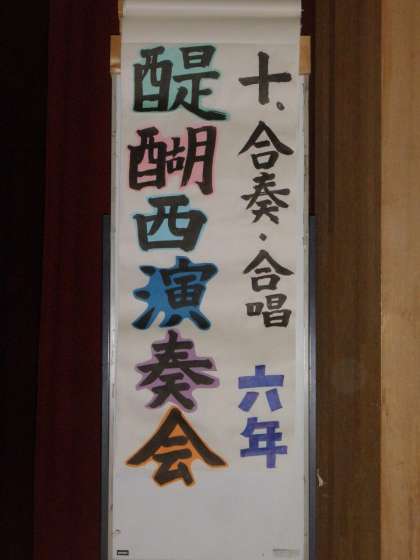 十、合奏・合唱 六年
醍醐西演奏会